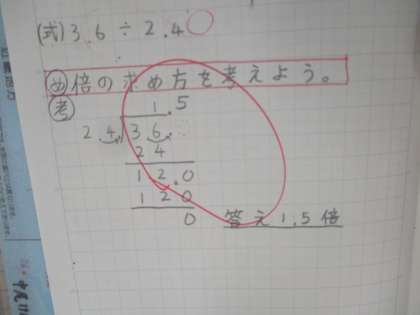 (式)3.6÷2.4
め 倍の求め方を考えよう。
考
1.5
2.4)3.6
24
12.0
120
0
答え1.5倍